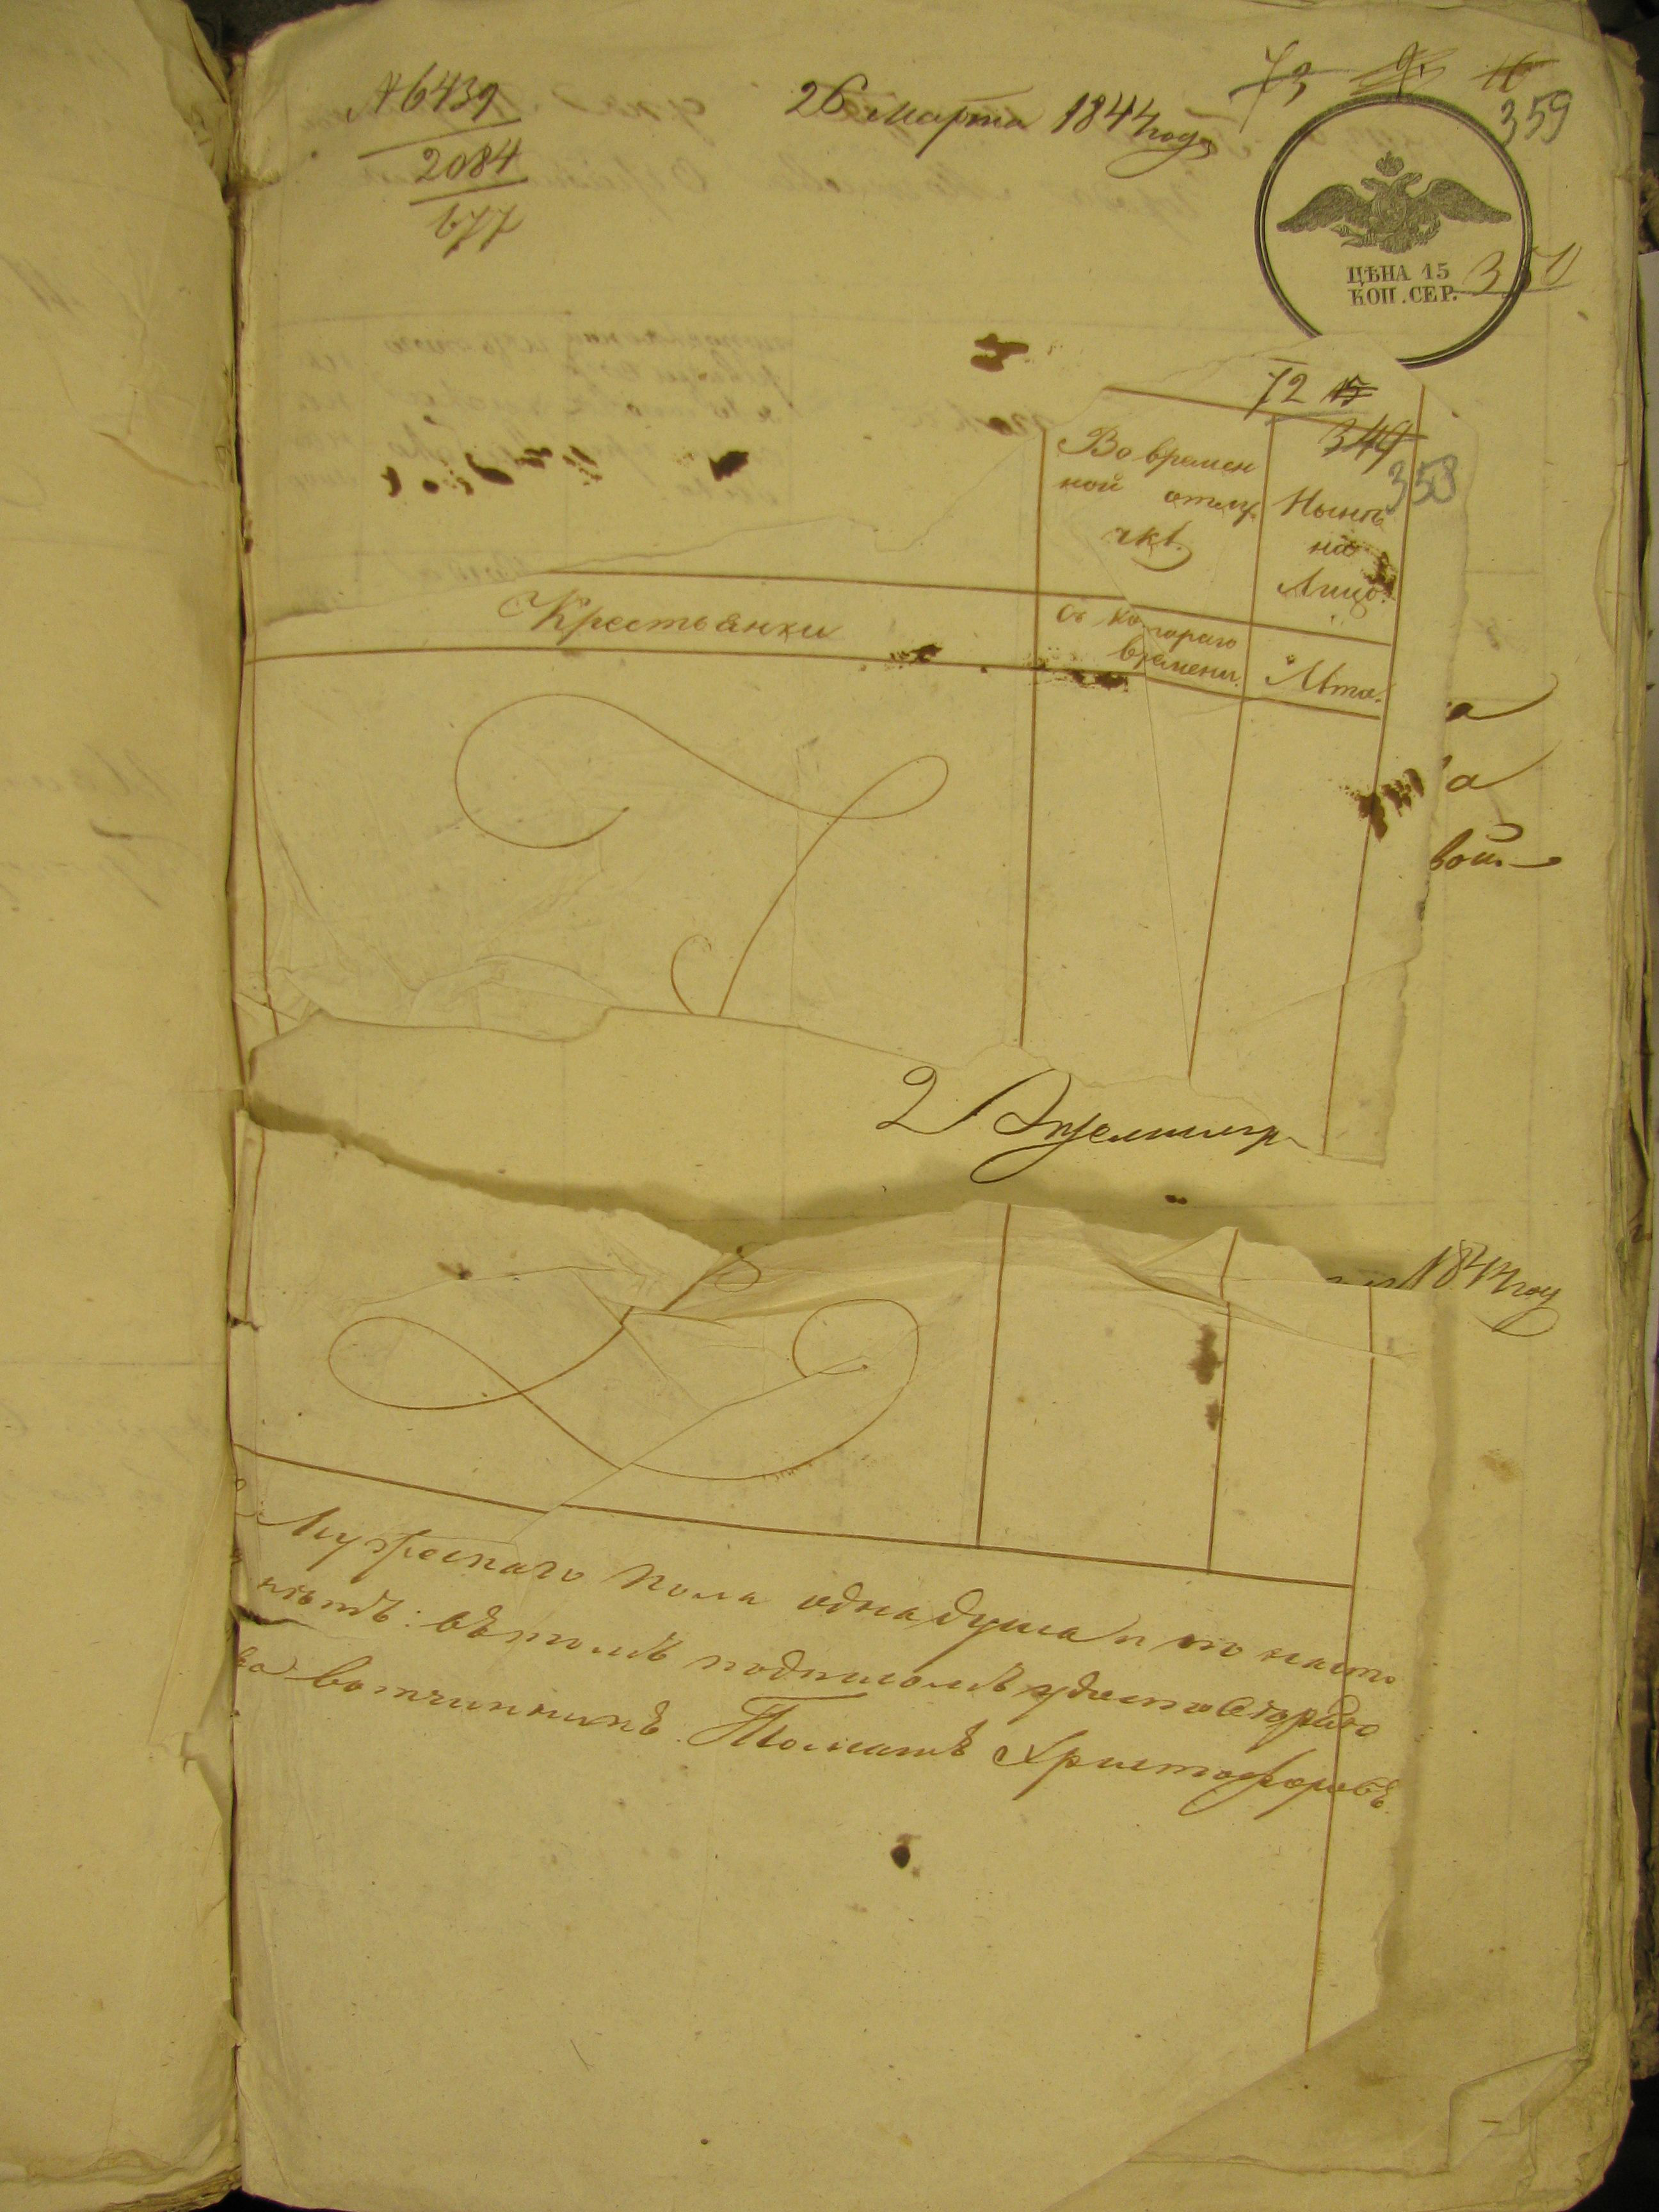 № 6439
2084
677
26 марта 1844 года
73
359
ЦѢНА 15
КОП. СЕР.
350
72 15
349
358
Во времен
ной отлу
чкѣ.
Нынѣ
на
Лицо.
Крестьянки
Съ котораго
времени.
Лѣта.
а
а
вой
2
1844 году
Мужескаго пола одна душа и по
нѣтъ: въ томъ подписомъ удостовѣряю
вотчинникъ Томашъ Христофоровъ.